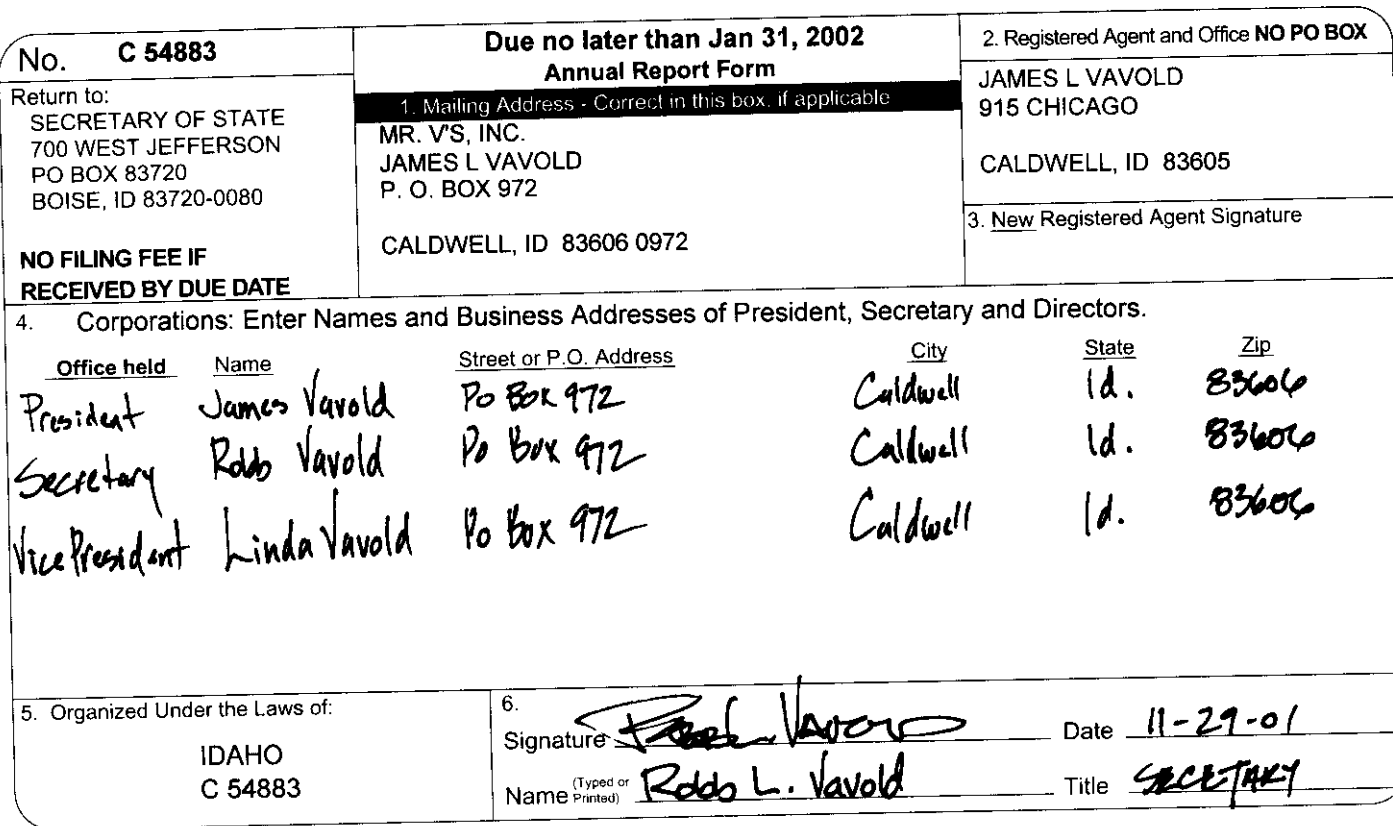 No. C 54883
Return to:
SECRETARY OF STATE
700 WEST JEFFERSON
PO BOX 83720
BOISE, ID 83720-0080
NO FILING FEE IF
RECEIVED BY DUE DATE
Due no later than Jan 31, 2002
Annual Report Form
1. Mailing Address - Correct in this box, if applicable
MR. V'S, INC.
JAMES L VAVOLD
P. O. BOX 972
CALDWELL, ID 83606 0972
2. Registered Agent and Office NO PO BOX
JAMES L VAVOLD
915 CHICAGO
CALDWELL, ID 83605
3. New Registered Agent Signature
4. Corporations: Enter Names and Business Addresses of President, Secretary and Directors.
Office held Name Street or P.O. Address City State Zip
President James Vavold Po Box 972 Caldwell Id. 83606
Secretary Robb Vavold Po Box 972 Caldwell Id. 83606
Vice President Linda Vavold Po Box 972 Caldwell Id. 83606
5. Organized Under the Laws of:
IDAHO
C 54883
6.
Signature Vavold Date 11-29-01
Name (Typed or Printed) Robb L. Vavold Title SECRETARY